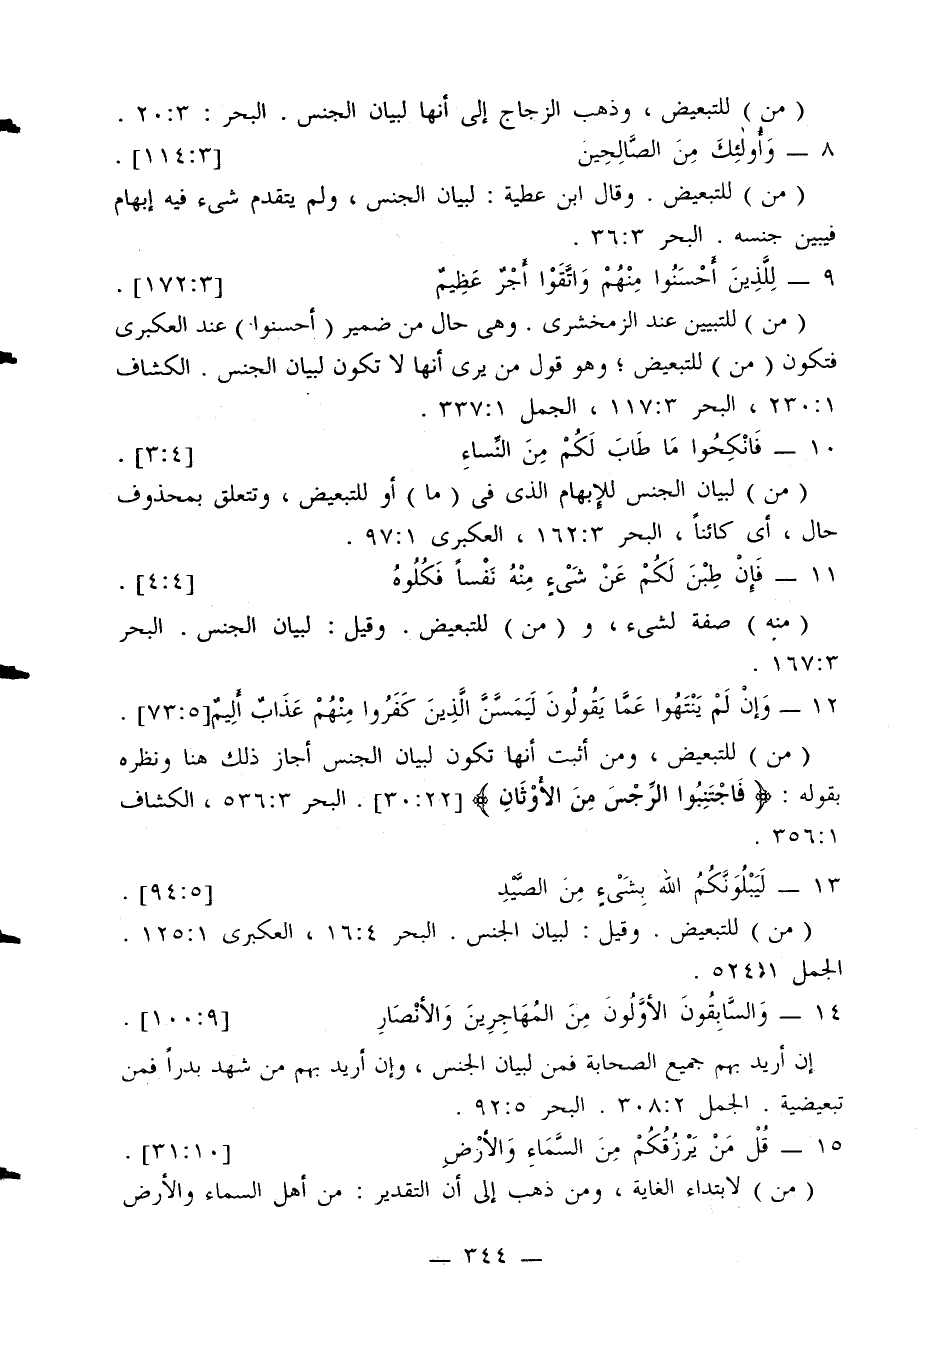 ( من ) للتبعيض ، وذهب الزجاج إلى أنها لبيان الجنس . البحر : ٢٠:٣ .
٨ — وَأُولَٰئِكَ مِنَ الصَّالِحِينَ [١١٤:٣] .
( من ) للتبعيض . وقال ابن عطية : لبيان الجنس ، ولم يتقدم شىء فيه إبهام
فيبين جنسه . البحر ٣٦:٣ .
٩ — لِلَّذِينَ أَحْسَنُوا مِنْهُمْ وَاتَّقَوْا أَجْرٌ عَظِيمٌ [١٧٢:٣] .
( من ) للتبيين عند الزمخشرى . وهى حال من ضمير ( أحسنوا ) عند العكبرى
فتكون ( من ) للتبعيض ؛ وهو قول من يرى أنها لا تكون لبيان الجنس . الكشاف
٢٣٠:١ ، البحر ١١٧:٣ ، الجمل ٣٣٧:١ .
١٠ — فَانْكِحُوا مَا طَابَ لَكُمْ مِنَ النِّساءِ [٣:٤] .
( من ) لبيان الجنس للإبهام الذى فى ( ما ) أو للتبعيض ، وتتعلق بمحذوف
حال ، أى كائناً ، البحر ١٦٢:٣ ، العكبرى ٩٧:١ .
١١ — فَإِنْ طِبْنَ لَكُمْ عَنْ شَىْءٍ مِنْهُ نَفْساً فَكُلُوهُ [٤:٤] .
( منه ) صفة لشىء ، و ( من ) للتبعيض . وقيل : لبيان الجنس . البحر
١٦٧:٣ .
١٢ — وَإِنْ لَمْ يَنْتَهُوا عَمَّا يَقُولُونَ لَيَمَسَّنَّ الَّذِينَ كَفَرُوا مِنْهُمْ عَذَابٌ أَلِيمٌ[٧٣:٥] .
( من ) للتبعيض ، ومن أثبت أنها تكون لبيان الجنس أجاز ذلك هنا ونظره
بقوله : ﴿ فَاجْتَنِبُوا الرِّجْسَ مِنَ الأَوْثَانِ ﴾ [٣٠:٢٢] . البحر ٥٣٦:٣ ، الكشاف
٣٥٦:١ .
١٣ — لَيَبْلُوَنَّكُمُ اللهُ بِشَىْءٍ مِنَ الصَّيْدِ [٩٤:٥] .
( من ) للتبعيض . وقيل : لبيان الجنس . البحر ١٦:٤ ، العكبرى ١٢٥:١ .
الجمل ٥٢٤:١ .
١٤ — وَالسَّابِقُونَ الأَوَّلُونَ مِنَ المُهَاجِرِينَ وَالأَنْصَارِ [١٠٠:٩] .
إن أريد بهم جميع الصحابة فمن لبيان الجنس ، وإن أريد بهم من شهد بدراً فمن
تبعيضية . الجمل ٣٠٨:٢ . البحر ٩٢:٥ .
١٥ — قُلْ مَنْ يَرْزُقُكُمْ مِنَ السَّمَاءِ وَالأَرْضِ [٣١:١٠] .
( من ) لابتداء الغاية ، ومن ذهب إلى أن التقدير : من أهل السماء والأرض
— ٣٤٤ —